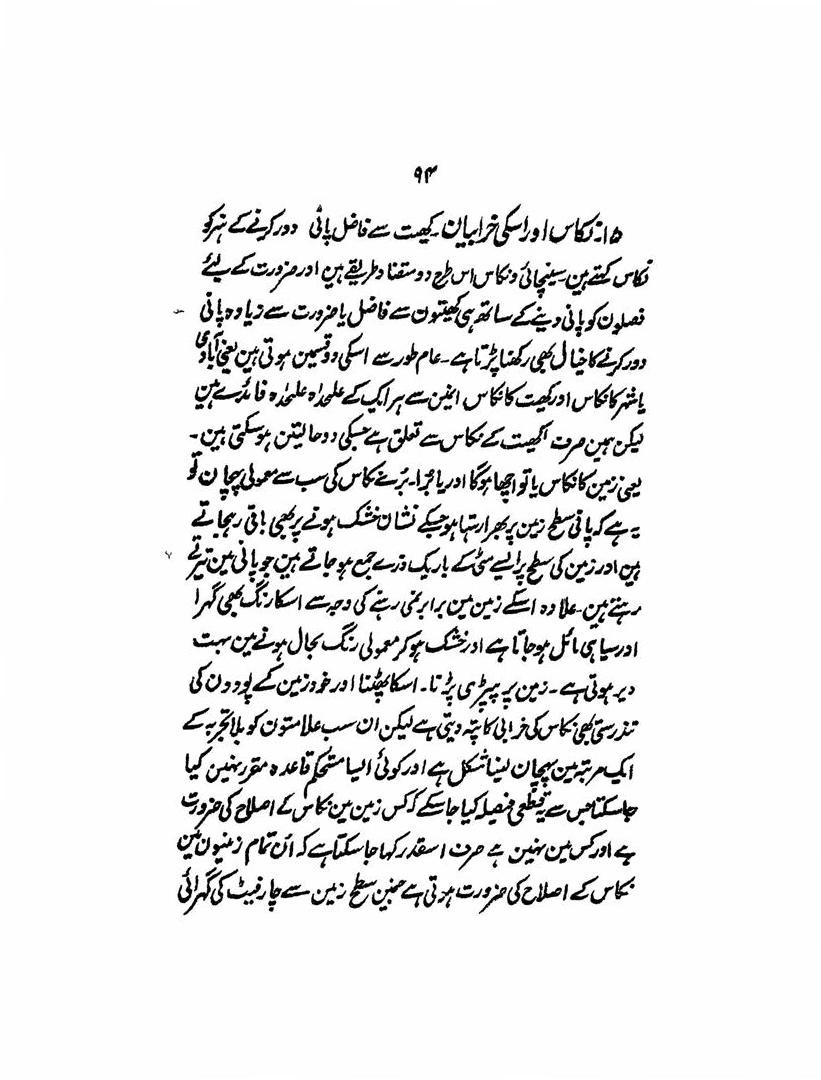 ۹۴
۱۵۔ نکاس اور اسکی خرابیان۔ کھیت سے فاضل پانی دور کرنے کے ہنر کو
نکاس کہتے ہین۔ سینچائی و نکاس اس طرح دو متضاد طریقے ہین اور ضرورت کے لیئے
فصلون کو پانی دینے کے ساتھ ہی کھیتون سے فاضل یا ضرورت سے زیادہ پانی
دور کرنے کا خیال بھی رکھنا پڑتا ہے۔ عام طور سے اسکی دو قسمین ہوتی ہین یعنی آبادی
یا شہر کا نکاس اور کھیت کا نکاس انمین سے ہر ایک کے علحدہ علحدہ فائدے ہین
لیکن ہمین صرف کھیت کے نکاس سے تعلق ہے جسکی دو حالیتن ہو سکتی ہین۔
یعنی زمین کا نکاس یا تو اچھا ہوگا اور یا برُا۔ برُے نکاس کی سب سے معمولی پہچان تو
یہ ہے کہ پانی سطح زمین پر بھرا رہتا ہو جسکے نشان خشک ہونے پر بھی باقی رہجاتے
ہین اور زمین کی سطح پر ایسے مٹی کے باریک ذرے جمع ہو جاتے ہین جو پانی مین تیرتے
رہتے ہین۔ علاوہ اسکے زمین مین برابر نمی رہنے کی وجہ سے اسکا رنگ بھی گہرا
اور سیاہی مائل ہوجاتا ہے اور خشک ہو کر معمولی رنگ بحال ہونے مین بہت
دیر ہوتی ہے۔ زمین پر پپڑی پڑنا۔ اسکا پھٹنا اور خود زمین کے پودون کی
تندرستی بھی نکاس کی خرابی کا پتہ دیتی ہے لیکن ان سب علامتون کو بلا تجربہ کے
ایک مرتبہ مین پہچان لینا مشکل ہے اور کوئی ایسا مستحکم قاعدہ مقرر نہین کیا
جاسکتا جس سے یہ قطعی فیصلہ کیا جاسکے کہ کس زمین مین نکاس کے اصلاح کی ضرورت
ہے اور کس مین نہین ہے صرف اسقدر کہا جاسکتا ہے کہ اُن تمام زمینون مین
نکاس کے اصلاح کی ضرورت ہوتی ہے جنمین سطح زمین سے چار فیٹ کی گہرائی